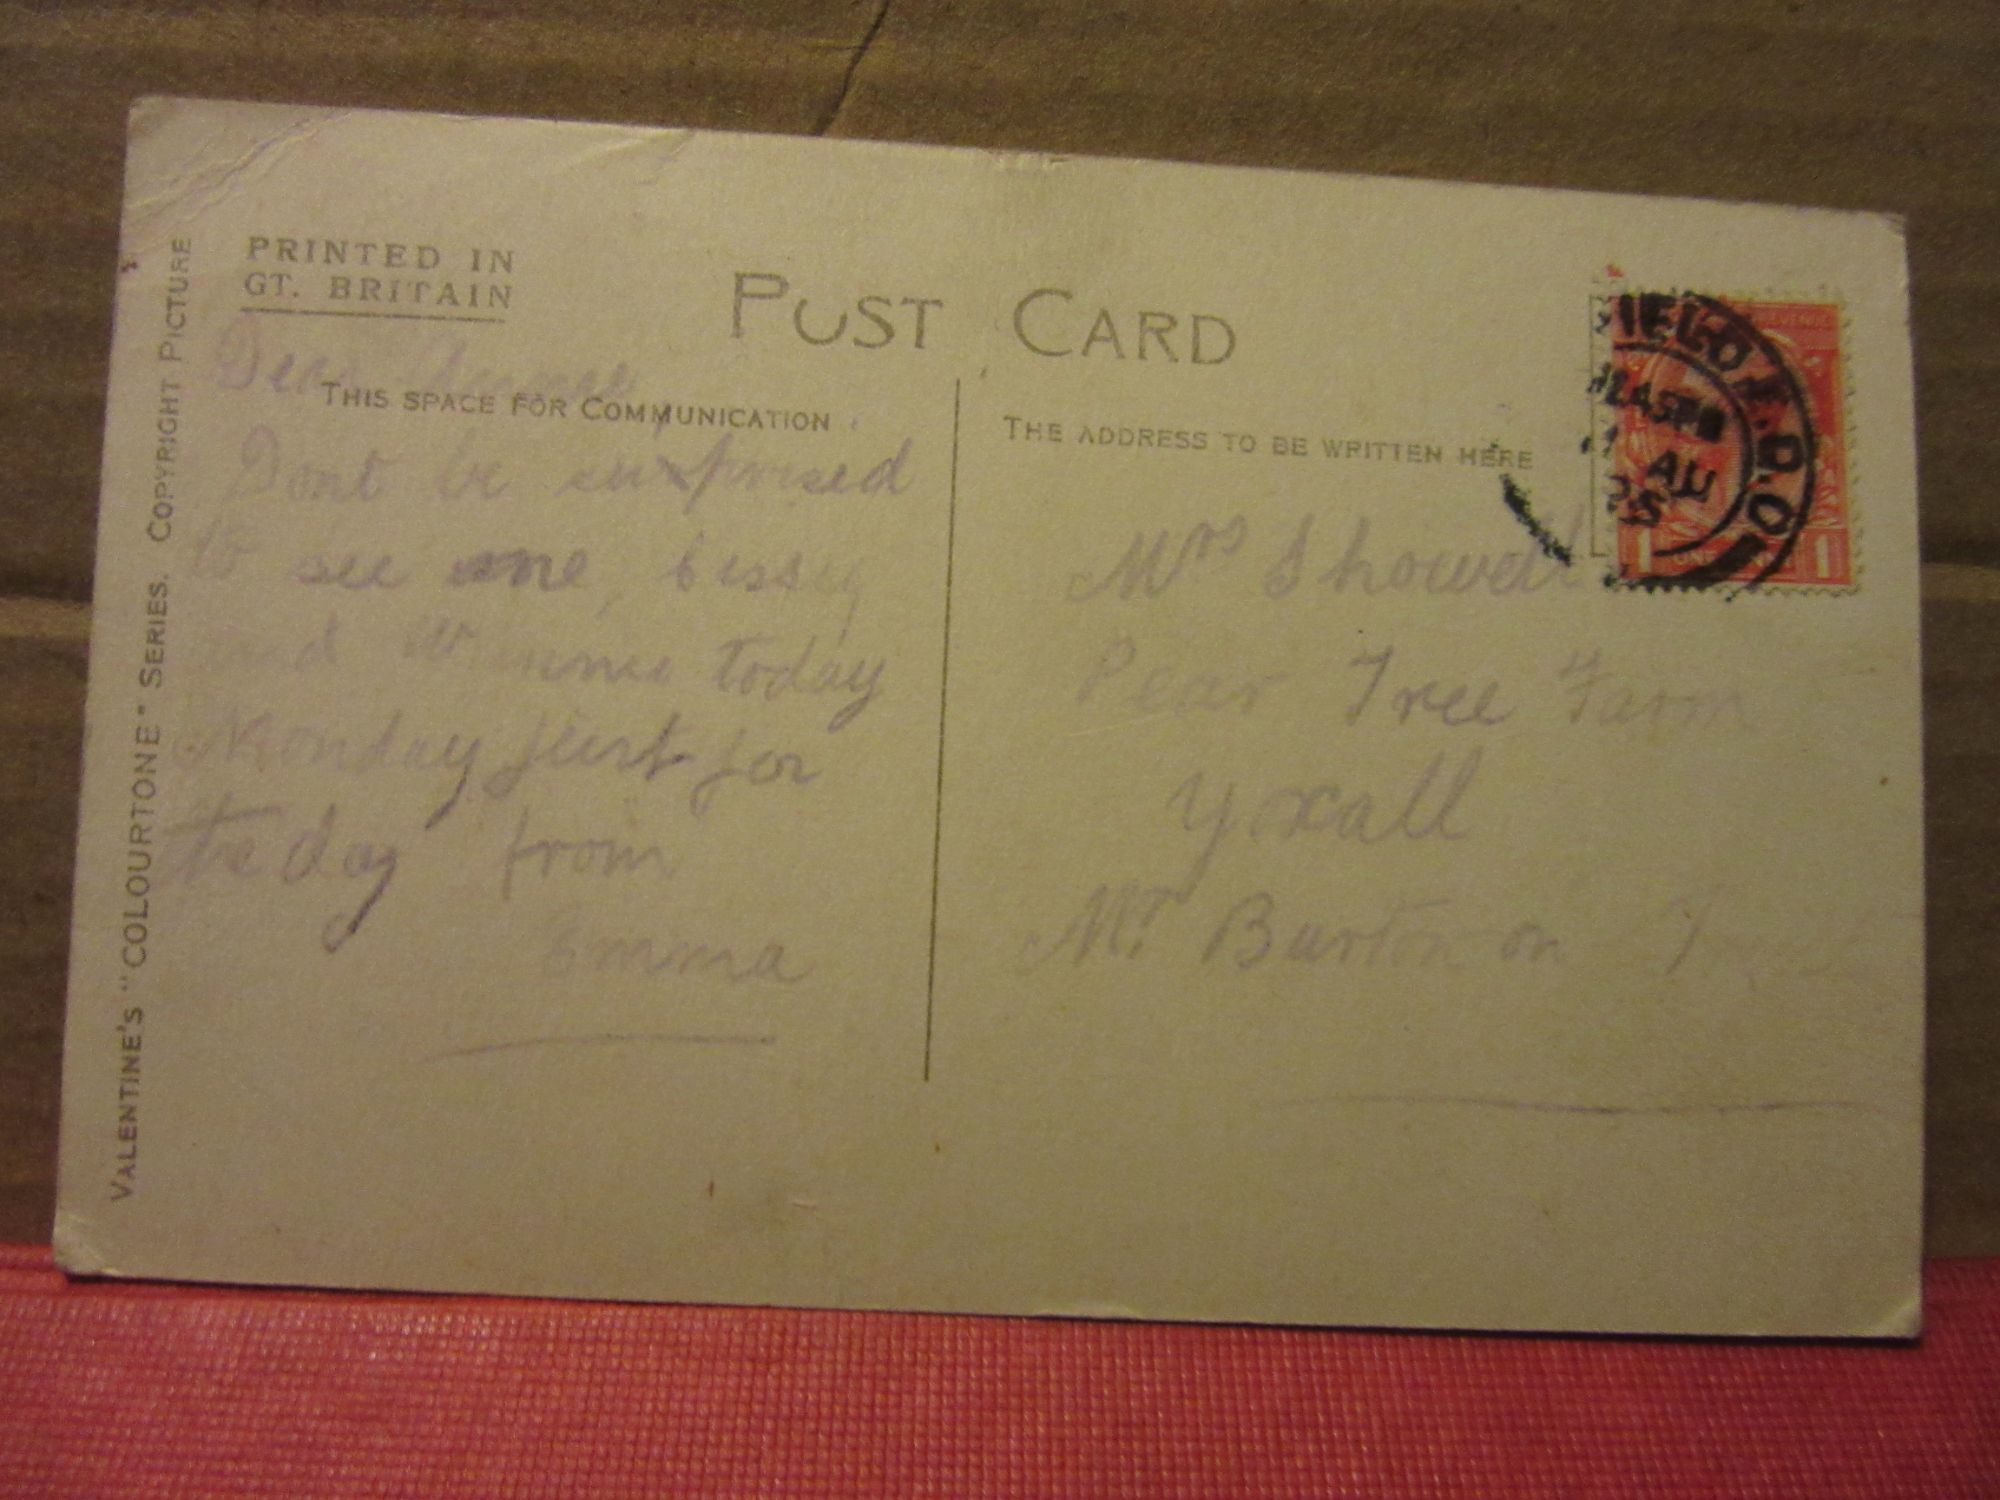 PRINTED IN
GT. BRITAIN
POST CARD
THIS SPACE FOR COMMUNICATION
THE ADDRESS TO BE WRITTEN HERE
VALENTINE'S "COLOURTONE" SERIES. COPYRIGHT PICTURE
Dear
Dont be surprised
to see me, Cissey
and Winnie today
Monday just for
the day from
Emma
Mrs Showell
Pear Tree Farm
Yoxall
Nr Burton on
IELD. B.O
12.45PM
AU
25
1 ONE PENNY 1